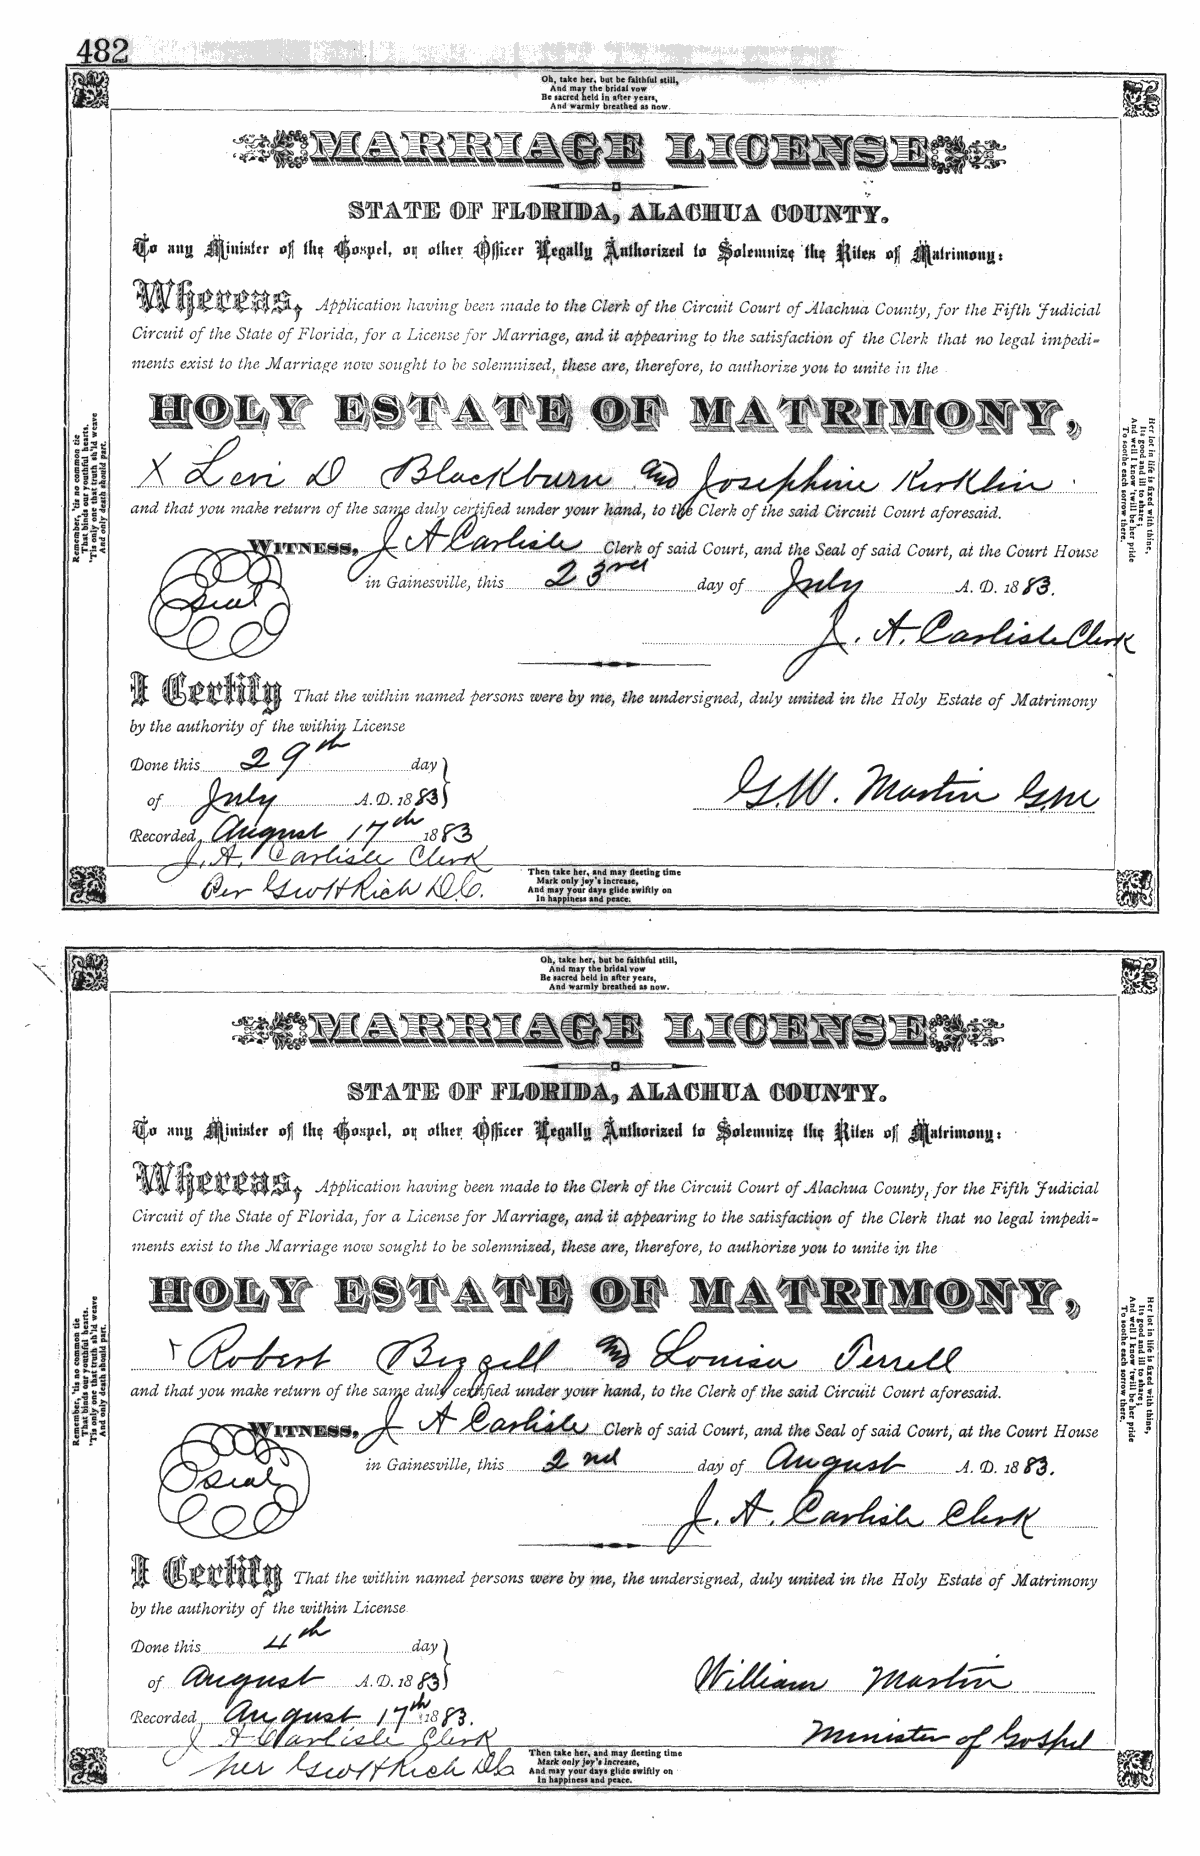 482
Oh, take her, but be faithful still,
And may the bridal vow
Be sacred held in after years,
And warmly breathed as now.
MARRIAGE LICENSE
STATE OF FLORIDA, ALACHUA COUNTY.
To any Minister of the Gospel, or other Officer Legally Authorized to Solemnize the Rites of Matrimony:
Whereas, Application having been made to the Clerk of the Circuit Court of Alachua County, for the Fifth Judicial
Circuit of the State of Florida, for a License for Marriage, and it appearing to the satisfaction of the Clerk that no legal impedi-
ments exist to the Marriage now sought to be solemnized, these are, therefore, to authorize you to unite in the
HOLY ESTATE OF MATRIMONY,
X Levi D Blackburn and Josephine Kirklin
and that you make return of the same duly certified under your hand, to the Clerk of the said Circuit Court aforesaid.
WITNESS, J A Carlisle Clerk of said Court, and the Seal of said Court, at the Court House
Seal
in Gainesville, this 23rd day of July A. D. 1883.
J. A. Carlisle Clerk
I Certify That the within named persons were by me, the undersigned, duly united in the Holy Estate of Matrimony
by the authority of the within License
Done this 29th day
of July A. D. 1883
G. W. Martin G.M
Recorded, August 17th 1883
J. A. Carlisle Clerk
Per Geo H Rich D.C.
Remember, 'tis no common tie
That binds our youthful hearts,
'Tis only one that truth sh'ld weave
And only death should part.
Her lot in life is fixed with thine,
Its good and ill to share;
And well I know 'twill be her pride
To soothe each sorrow there.
Then take her, and may fleeting time
Mark only joy's increase,
And may your days glide swiftly on
In happiness and peace.
Oh, take her, but be faithful still,
And may the bridal vow
Be sacred held in after years,
And warmly breathed as now.
MARRIAGE LICENSE
STATE OF FLORIDA, ALACHUA COUNTY.
To any Minister of the Gospel, or other Officer Legally Authorized to Solemnize the Rites of Matrimony:
Whereas, Application having been made to the Clerk of the Circuit Court of Alachua County, for the Fifth Judicial
Circuit of the State of Florida, for a License for Marriage, and it appearing to the satisfaction of the Clerk that no legal impedi-
ments exist to the Marriage now sought to be solemnized, these are, therefore, to authorize you to unite in the
HOLY ESTATE OF MATRIMONY,
Robert Bizzell and Louisa Terrell
and that you make return of the same duly certified under your hand, to the Clerk of the said Circuit Court aforesaid.
WITNESS, J A Carlisle Clerk of said Court, and the Seal of said Court, at the Court House
Seal
in Gainesville, this 2nd day of August A. D. 1883.
J. A. Carlisle Clerk
I Certify That the within named persons were by me, the undersigned, duly united in the Holy Estate of Matrimony
by the authority of the within License
Done this 4th day
of August A. D. 1883
William Martin
Recorded, August 17th 1883.
Minister of Gospel
J A Carlisle Clerk
per Geo H Rich D.C.
Remember, 'tis no common tie
That binds our youthful hearts,
'Tis only one that truth sh'ld weave
And only death should part.
Her lot in life is fixed with thine,
Its good and ill to share;
And well I know 'twill be her pride
To soothe each sorrow there.
Then take her, and may fleeting time
Mark only joy's increase,
And may your days glide swiftly on
In happiness and peace.